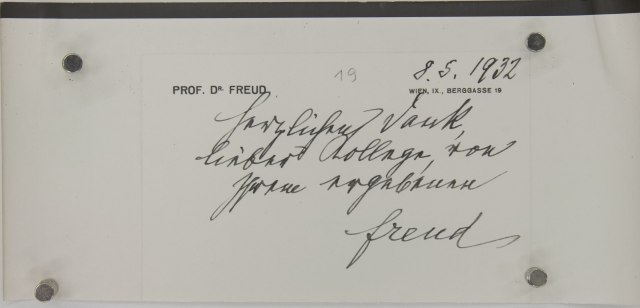 19
8.5.1932
PROF. DR. FREUD
WIEN, IX., BERGGASSE 19
Herzlichen Dank,
lieber Kollege, von
Ihrem ergebenen
Freud